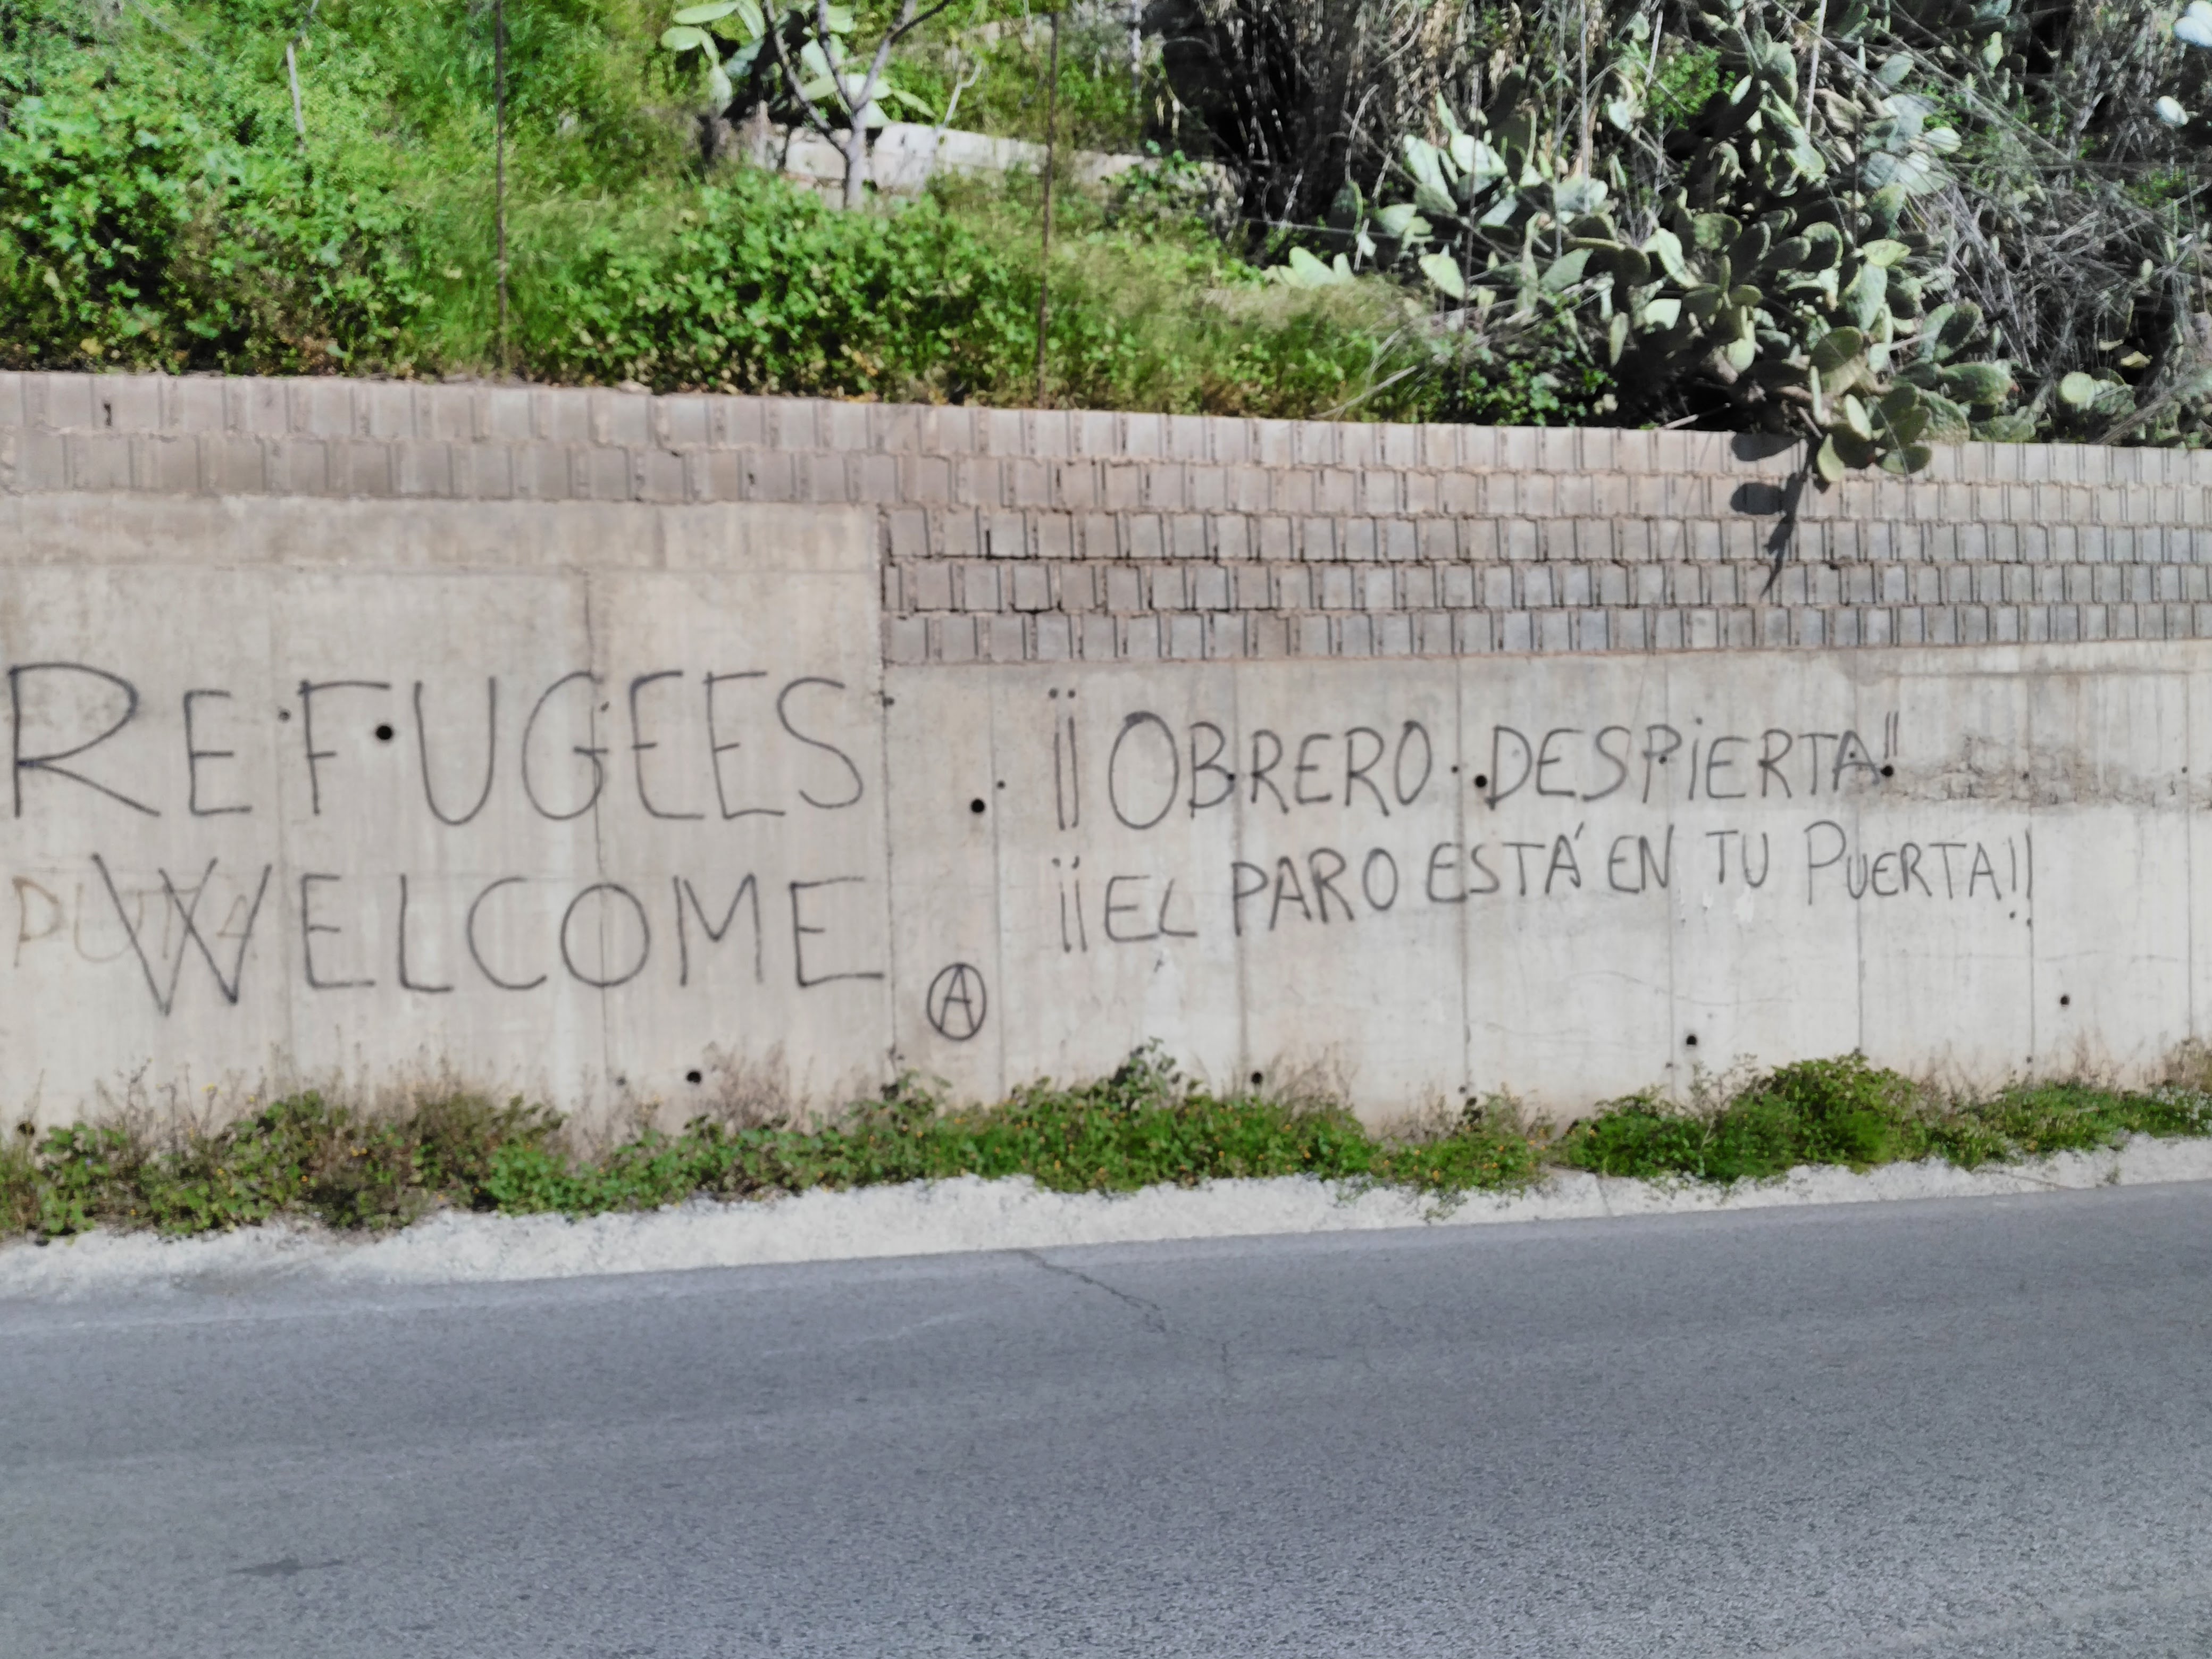 REFUGEES
WELCOME
PUTA
Ⓐ
¡¡OBRERO DESPiERTA!!
¡¡EL PARO ESTÁ EN TU PUERTA!!